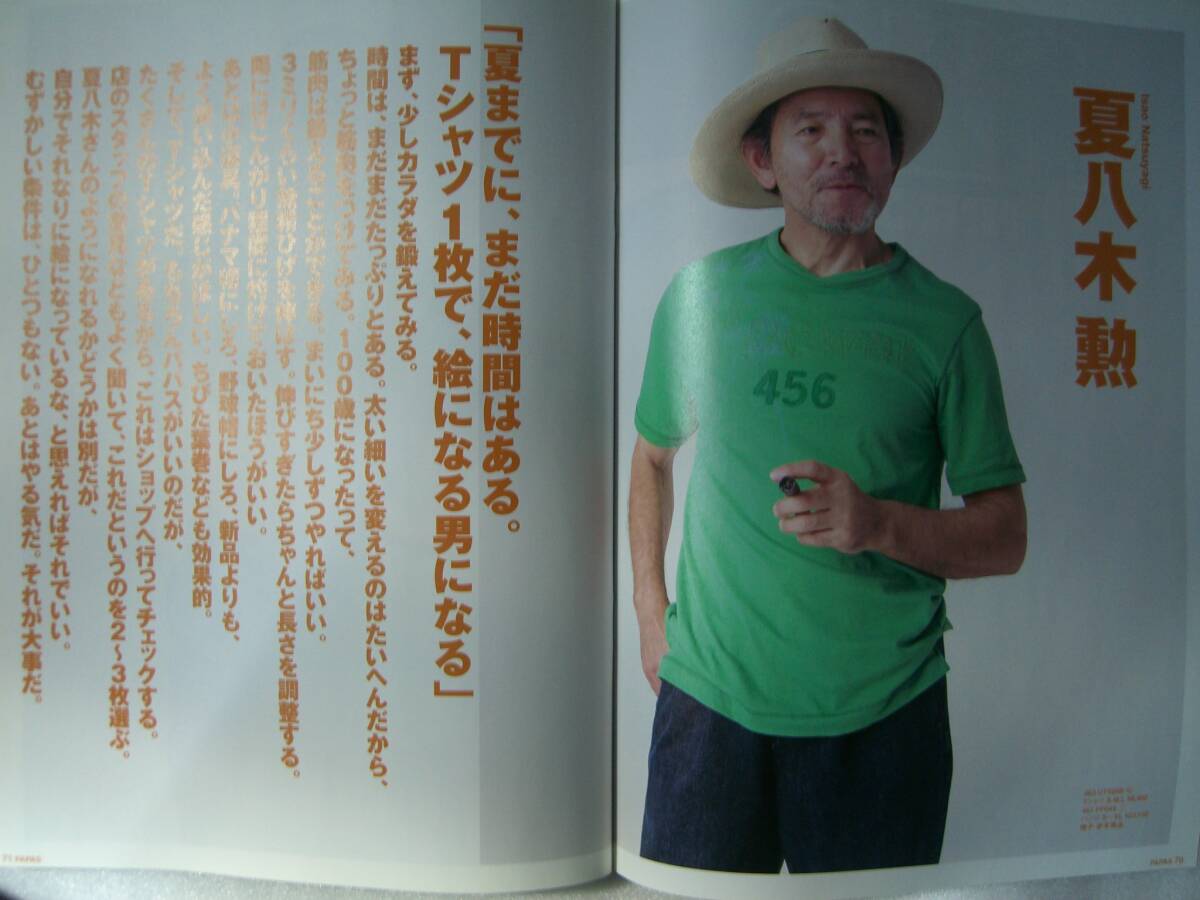 Isao Natsuyagi
夏八木 勲
456
「夏までに、まだ時間はある。
Tシャツ1枚で、絵になる男になる」
まず、少しカラダを鍛えてみる。
時間は、まだまだたっぷりとある。太い細いを変えるのはたいへんだから、
ちょっと筋肉をつけてみる。100歳になったって、
筋肉は鍛えることができる。まいにち少しずつやればいい。
3ミリくらい無精ひげを伸ばす。伸びすぎたらちゃんと長さを調整する。
陽にはこんがり程度に焼けておいたほうがいい。
あとは小道具。パナマ帽にしろ、野球帽にしろ、新品よりも、
よく使い込んだ感じがほしい。ちびた葉巻なども効果的。
そして、Tシャツだ。もちろんパパスがいいのだが、
たくさんのTシャツがあるから、これはショップへ行ってチェックする。
店のスタッフの意見などもよく聞いて、これだというのを2〜3枚選ぶ。
夏八木さんのようになれるかどうかは別だが、
自分でそれなりに絵になっているな、と思えればそれでいい。
むずかしい条件は、ひとつもない。あとはやる気だ。それが大事だ。
71 PAPAS
PAPAS 70